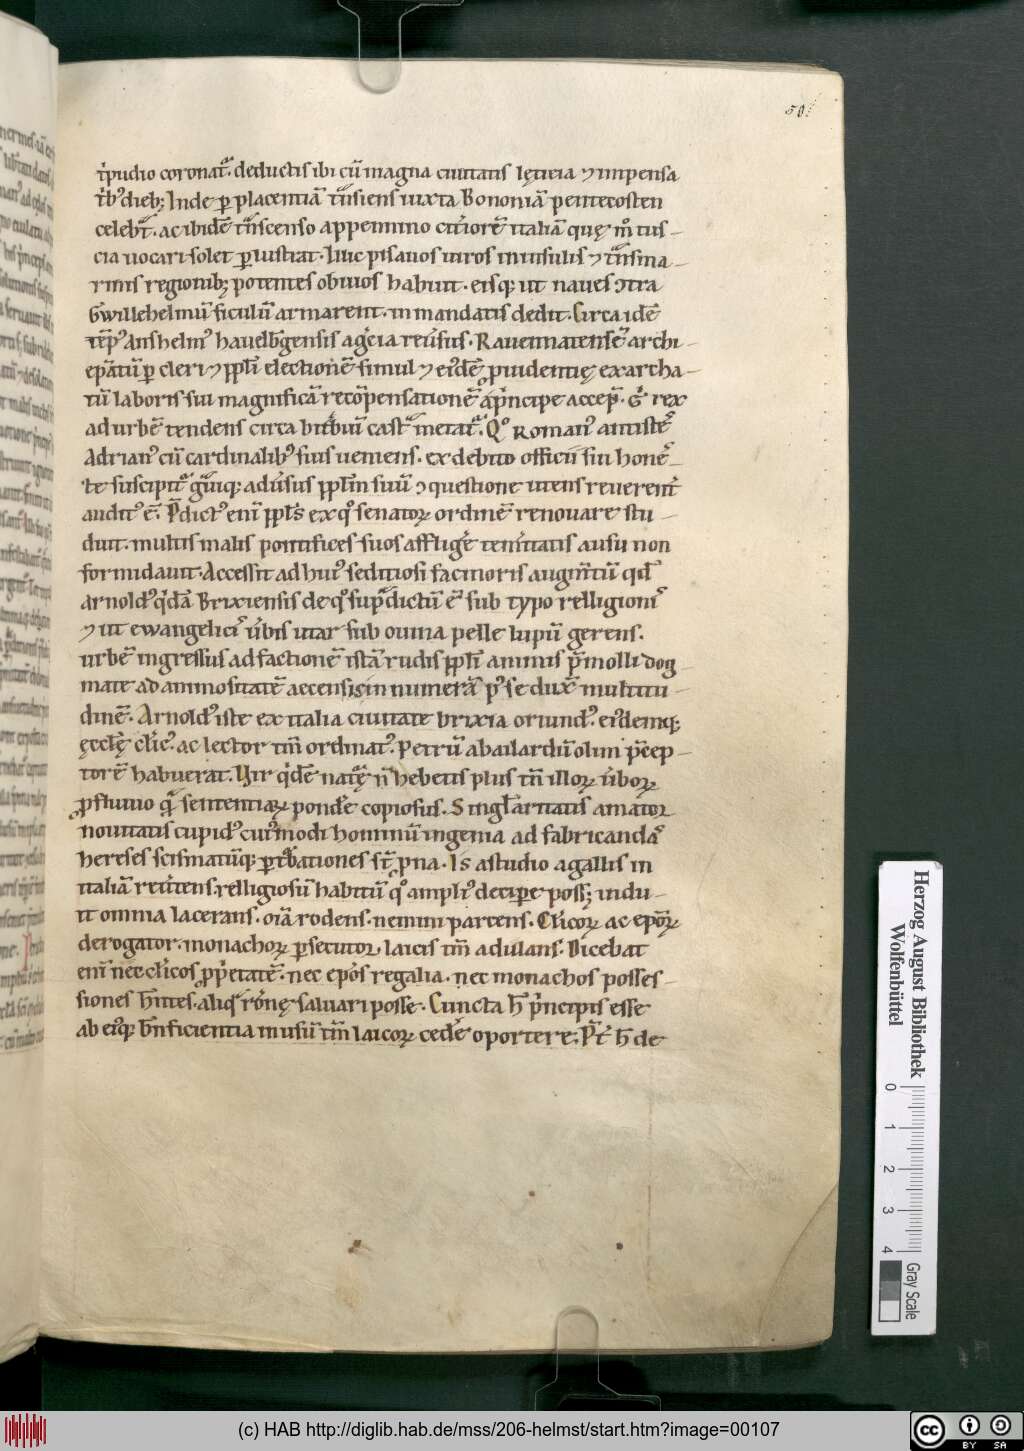 50
t̍pudio coronat᷑. deductis ibi cū magna ciuitatis lęticia ⁊ inpensa
t̍bꝰ dieb; Inde ꝑ placentiā t᷑nsiens iuxta Bononiā pentecosten
celeb᷑t. ac ibidē t᷑nscenso appennino cit̍iorē italiā quę m̊ tus-
cia uocari solet ꝑlustrat. Illic pisanos uiros in insulis ⁊ t᷑nsma-
rinis regionib; potentes obuios habuit. eisq; ut naues ↄtra
Gwillehelmū siculū armarent. in mandatis dedit. Circa idē
tēpꝰ Anshelmꝰ hauelb̄gensis a gr̍cia reūsus. Rauennatensē archi-
ep̄atū ꝑ cleri ⁊ ppl̄i electionē simul ⁊ eiꝰdē ꝓuidentię exarcha-
tū laboris sui magnificā recōpensationē a pͥncipe accep̄. Gͥ rex
ad urbē tendens circa bit̍biū cast᷑ metat᷑. Qͦ Romanꝰ antistes
Adrianꝰ cū cardinalibꝰ suis ueniens. ex debito officii sui hone-
ste suscipit᷑ g᷑uiq; adūsus ppl̄m suū ↄquestione utens reuerent̍
auditꝰ ē. P̄dictꝰ enī ppl̄s ex qͦ senatoꝝ ordinē renouare stu-
duit. multis malis pontifices suos affligē tem̍itatis ausu non
formidauit. Accessit ad huiꝰ seditiosi facinoris augm̄tū qd̄
Arnoldꝰ qͥdā Brixiensis de qͦ sup̄dictū ē sub typo relligionis
⁊ ut ewangelicis ūbis utar sub ouina pelle lupū gerens.
urbē ingressus ad factionē istā rudis ppl̄i animis p̄molli dog
mate ad animositatē accensis innumerā pꝰ se duxit multitu-
dinē. Arnoldꝰ iste ex italia ciuitate brixia oriundꝰ. eiꝰdemq;
ęcclę cl̄icꝰ. ac lector tm̄ ordinatꝰ. Petrū abailardū olim p̄cep-
torē habuerat. Vir qͥdē natuę n̄ hebetis plus tn̄ illoꝝ ūboꝝ
ꝓfluuio qᷓ sententiaꝝ pondē copiosus. Singl̄aritatis amator
nouitatis cupidꝰ cuiꝰmodi hominū ingenia ad fabricandas
hereses scismatūq; ꝑt̍bationes st̄ ꝓna. Is a studio a gallis in
italiā reūtens relligiosū habitū qͦ ampliꝰ decipe poss; indu-
it omnia lacerans. oīa rodens. nemini parcens. Cl̄icoꝝ ac epōꝝ
derogator. monachoꝝ ꝑsecutor. laicis tm̄ adulans. Dicebat
enī nec cl̄icos ꝓp̍etatē. nec epōs regalia. nec monachos posses-
siones h̄ntes. aliqͣ rōnę saluari posse. Cuncta h̄ pͥncipis esse
ab eiꝰq; b̄nficientia in usū tm̄ laicoꝝ cedē oportere. P̄t̍ h̄ de
Herzog August Bibliothek
Wolfenbüttel
0 1 2 3 4
Gray Scale
(c) HAB http://diglib.hab.de/mss/206-helmst/start.htm?image=00107
cc BY SA